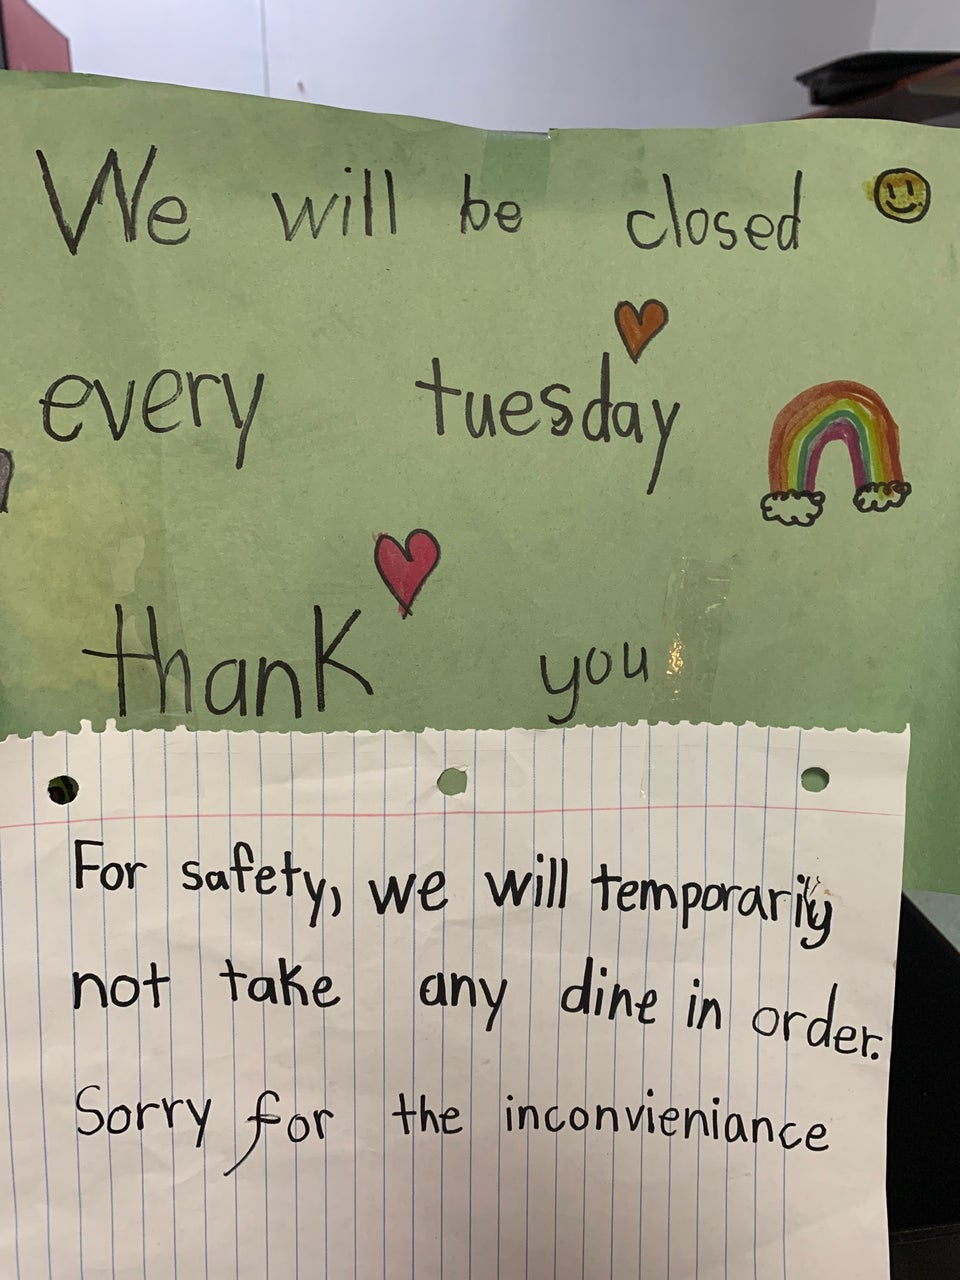 We will be closed
every tuesday
thank you
For safety, we will temporarily
not take any dine in order.
Sorry for the inconvieniance